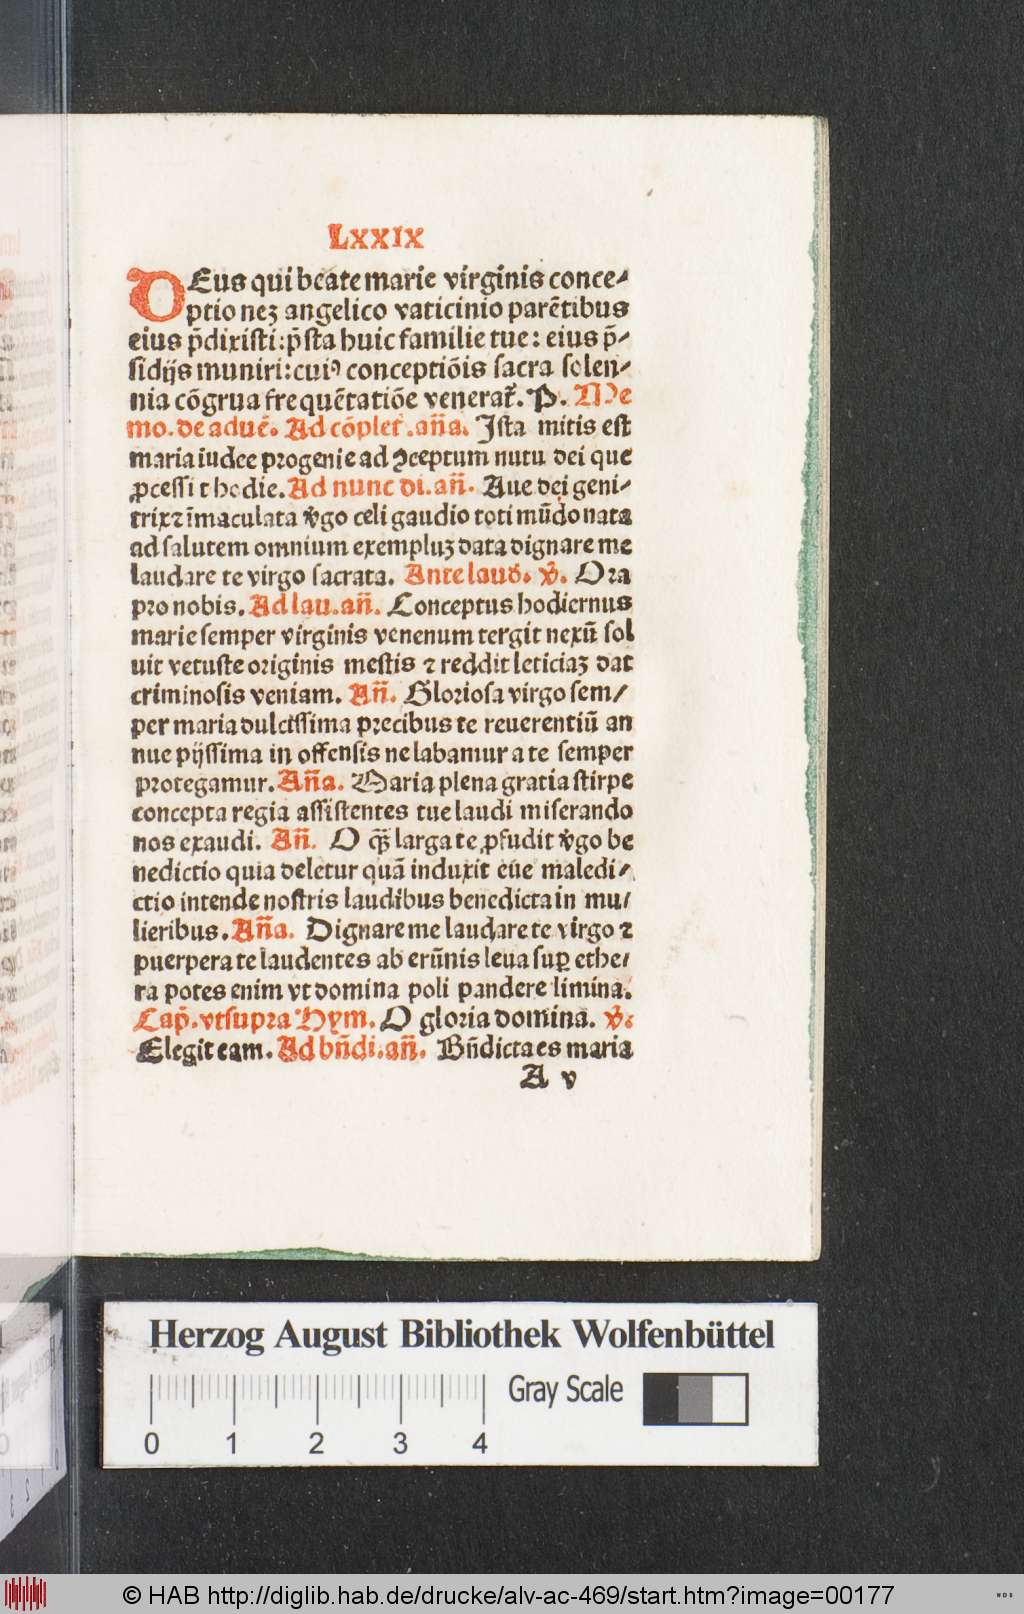 LXXIX
DEus qui beate marie virginis conce⸗
ptionez angelico vaticinio parẽtibus
eius p̃dixisti:p̃sta huic familie tue: eius p̃⸗
sidijs muniri:cuiꝰ conceptiõis sacra solen⸗
nia cõgrua frequẽtatiõe venerat̃. P. Me
mo. de aduẽ. Ad cõplet̃. añа. Ista mitis est
maria iudee progenie ad ꝯceptum nutu dei que
ꝓcessit hodie. Ad nunc di. añ. Aue dei geni⸗
trix ⁊ ĩmaculata v̾go celi gaudio toti mũdo nata
ad salutem omnium exempluꝫ data dignare me
laudare te virgo sacrata. Ante laud. ℣. Ora
pro nobis. Ad lau. añ. Conceptus hodiernus
marie semper virginis venenum tergit nexũ sol
uit vetuste originis mestis ⁊ reddit leticiaꝫ dat
criminosis veniam. Añ. Gloriosa virgo sem⸗
per maria dulcissima precibus te reuerentiũ an
nue pijssima in offensis ne labamur a te semper
protegamur. Aña. Maria plena gratia stirpe
concepta regia assistentes tue laudi miserando
nos exaudi. Añ. O q̃ꝫ larga te ꝓfudit v̾go be
nedictio quia deletur quã induxit eue maledi⸗
ctio intende nostris laudibus benedicta in mu⸗
lieribus. Aña. Dignare me laudare te virgo ⁊
puerpera te laudentes ab erũnis leua suꝑ ethe⸗
ra potes enim vt domina poli pandere limina.
Cap̃. vt supra Hym. O gloria domina. ℣.
Elegit eam. Ad bñdi. añ. Bñdicta es maria
A v
Herzog August Bibliothek Wolfenbüttel
Gray Scale
0 1 2 3 4
© HAB http://diglib.hab.de/drucke/alv-ac-469/start.htm?image=00177